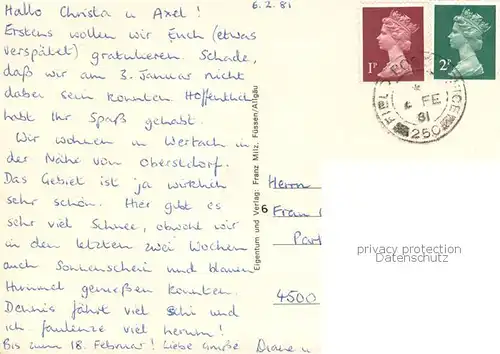 6.2.81
Hallo Christa u Axel!
Erstens wollen wir Euch (etwas
verspätet) gratulieren. Schade,
daß wir am 3. Januar nicht
dabei sein konnten. Hoffentlich
habt Ihr Spaß gehabt.
Wir wohnen in Wertach in
der Nähe von Oberstdorf.
Das Gebiet ist ja wirklich
sehr schön. Hier gibt es
sehr viel Schnee, obwohl wir
in den letzten zwei Wochen
auch Sonnenschein und blauen
Himmel genießen konnten.
Dennis fährt viel Ski und
ich faulenze viel herum!
Bis zum 18. Februar! Liebe Grüße Diane u
Eigentum und Verlag: Franz Milz, Füssen/Allgäu
1P
2P
FIELD POST OFFICE
FE
81
250
Herrn
6 Frau
4500
privacy protection
Datenschutz